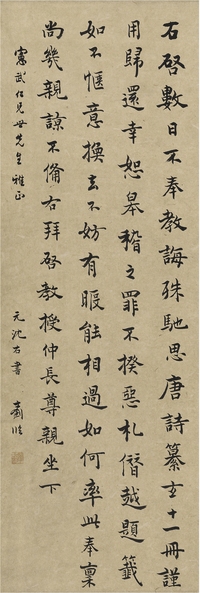 右啓數日不奉教誨殊馳思唐詩纂玄十一冊謹
用歸還幸恕皋稽之罪不揆惡札僭越題籤
如不愜意換去不妨有暇能相過如何率此奉稟
尚幾親諒不備右拜啓教授仲長尊親坐下
憲武仁兄世先生雅正
元沈右書